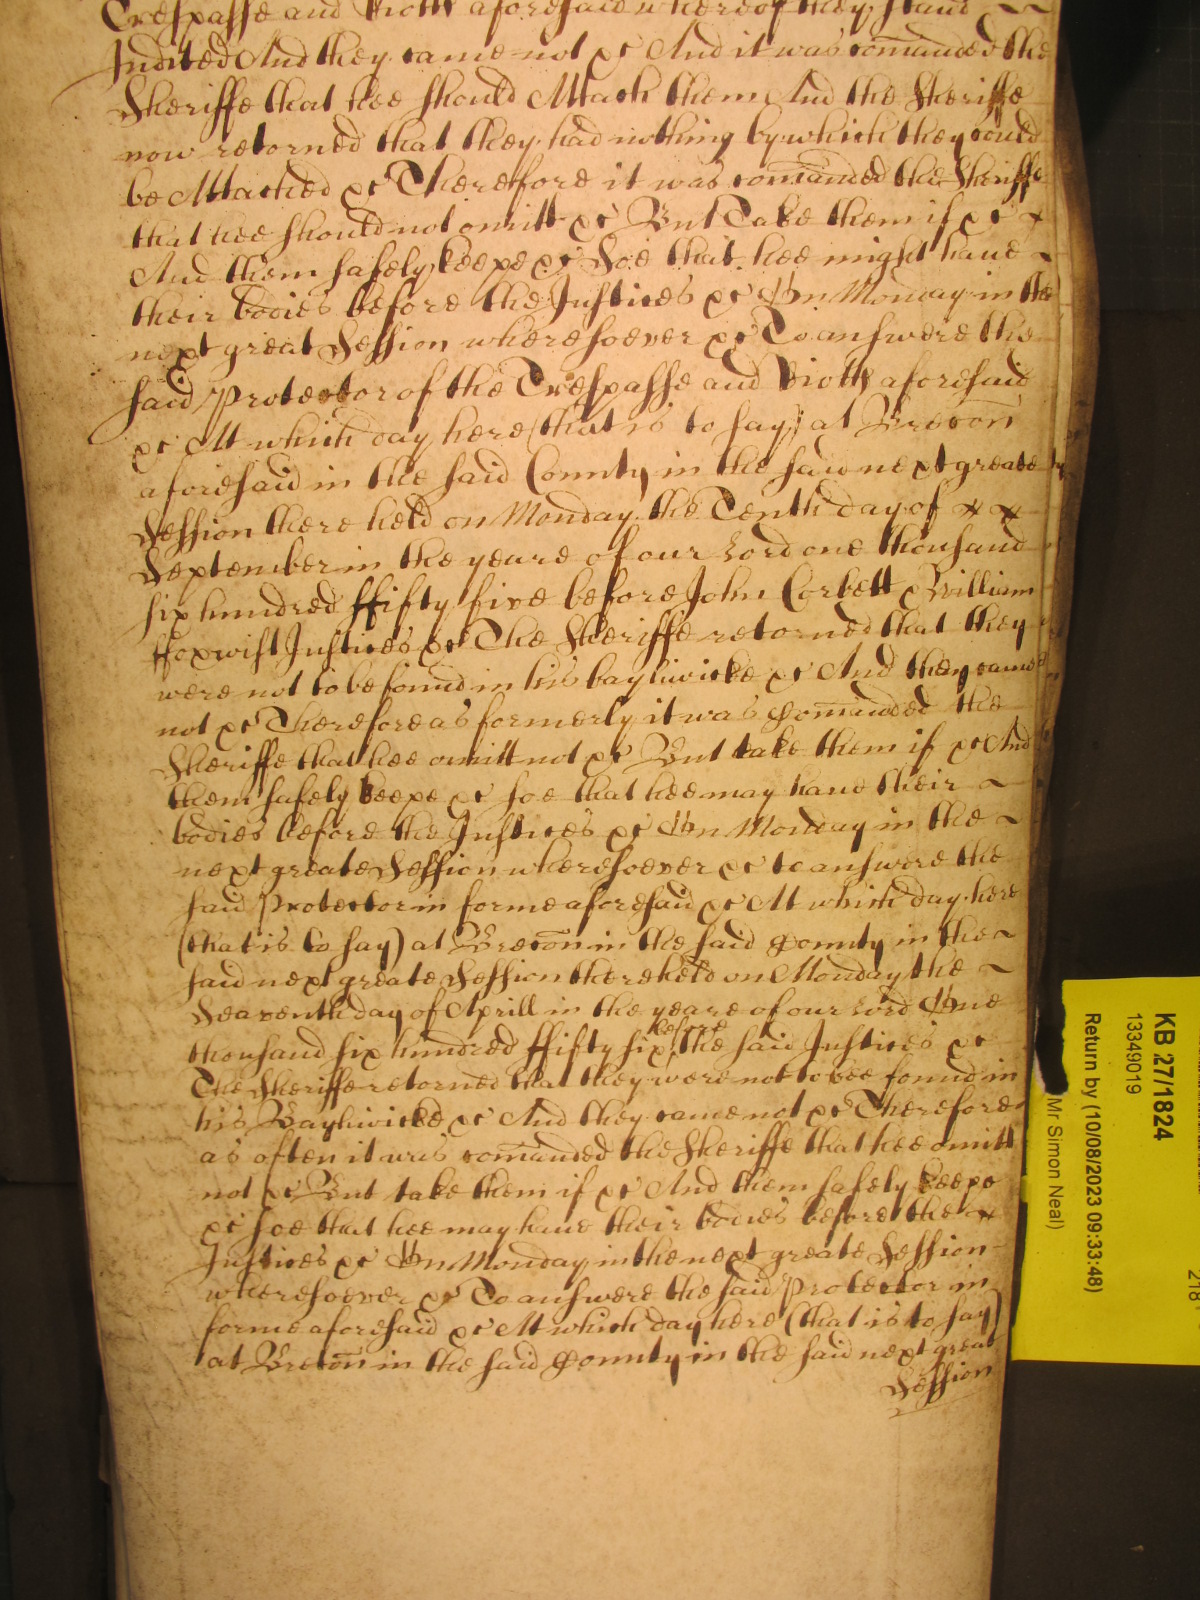 Trespasse and Riott aforesaid whereof they stand
Indited And they came not &c And it was com̄anded the
Sheriffe that hee should Attach them And the Sheriffe
now retorned that they had nothing by which they could
be Attached &c Therefore it was com̄anded the Sheriffe
that hee should not omitt &c But Take them if &c
And them safely keepe &c Soe that hee might have
their bodies before the Justices &c On Monday in the
next great Session wheresoever &c To answere the
said Protector of the Trespasse and Riott aforesaid
&c At which day here (that is to say) at Brecon̄
aforesaid in the said County in the said next greate
Session there held on Monday the Tenth day of
September in the yeare of our Lord one thousand
six hundred ffifty five before John Corbett & William
ffoxwist Justices &c The Sheriffe retorned that they
were not to be found in his bayliwicke &c And they came
not &c Therefore as formerly it was Com̄anded the
Sheriffe that hee omitt not &c But take them if &c And
them safely keepe &c soe that hee may have their
bodies before the Justices &c On Monday in the
next greate Session wheresoever &c to answere the
said Protector in forme aforesaid &c At which day here
(that is to say) at Brecon̄ in the said County in the
said next greate Session there held on Monday the
Seaventh day of Aprill in the yeare of our Lord One
thousand six hundred ffifty six before the said Justices &c
The Sheriffe retorned that they were not to bee found in
his Bayliwicke &c And they came not &c Therefore
as often it was com̄anded the Sheriffe that hee omitt
not &c But take them if &c And them safely keepe
&c soe that hee may have their bodies before the
Justices &c On Monday in the next greate Session
wheresoever &c To answere the said Protector in
forme aforesaid &c At which day here (that is to say)
at Brecon̄ in the said County in the said next great
Session
KB 27/1824
13349019
Return by (10/08/2023 09:33:48)
Mr Simon Neal)